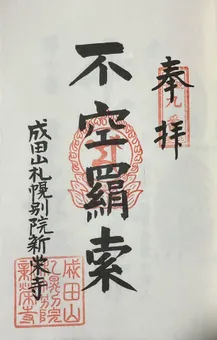 奉拝
不空羂索
成田山札幌別院新栄寺
成田山
札幌別院
新栄寺